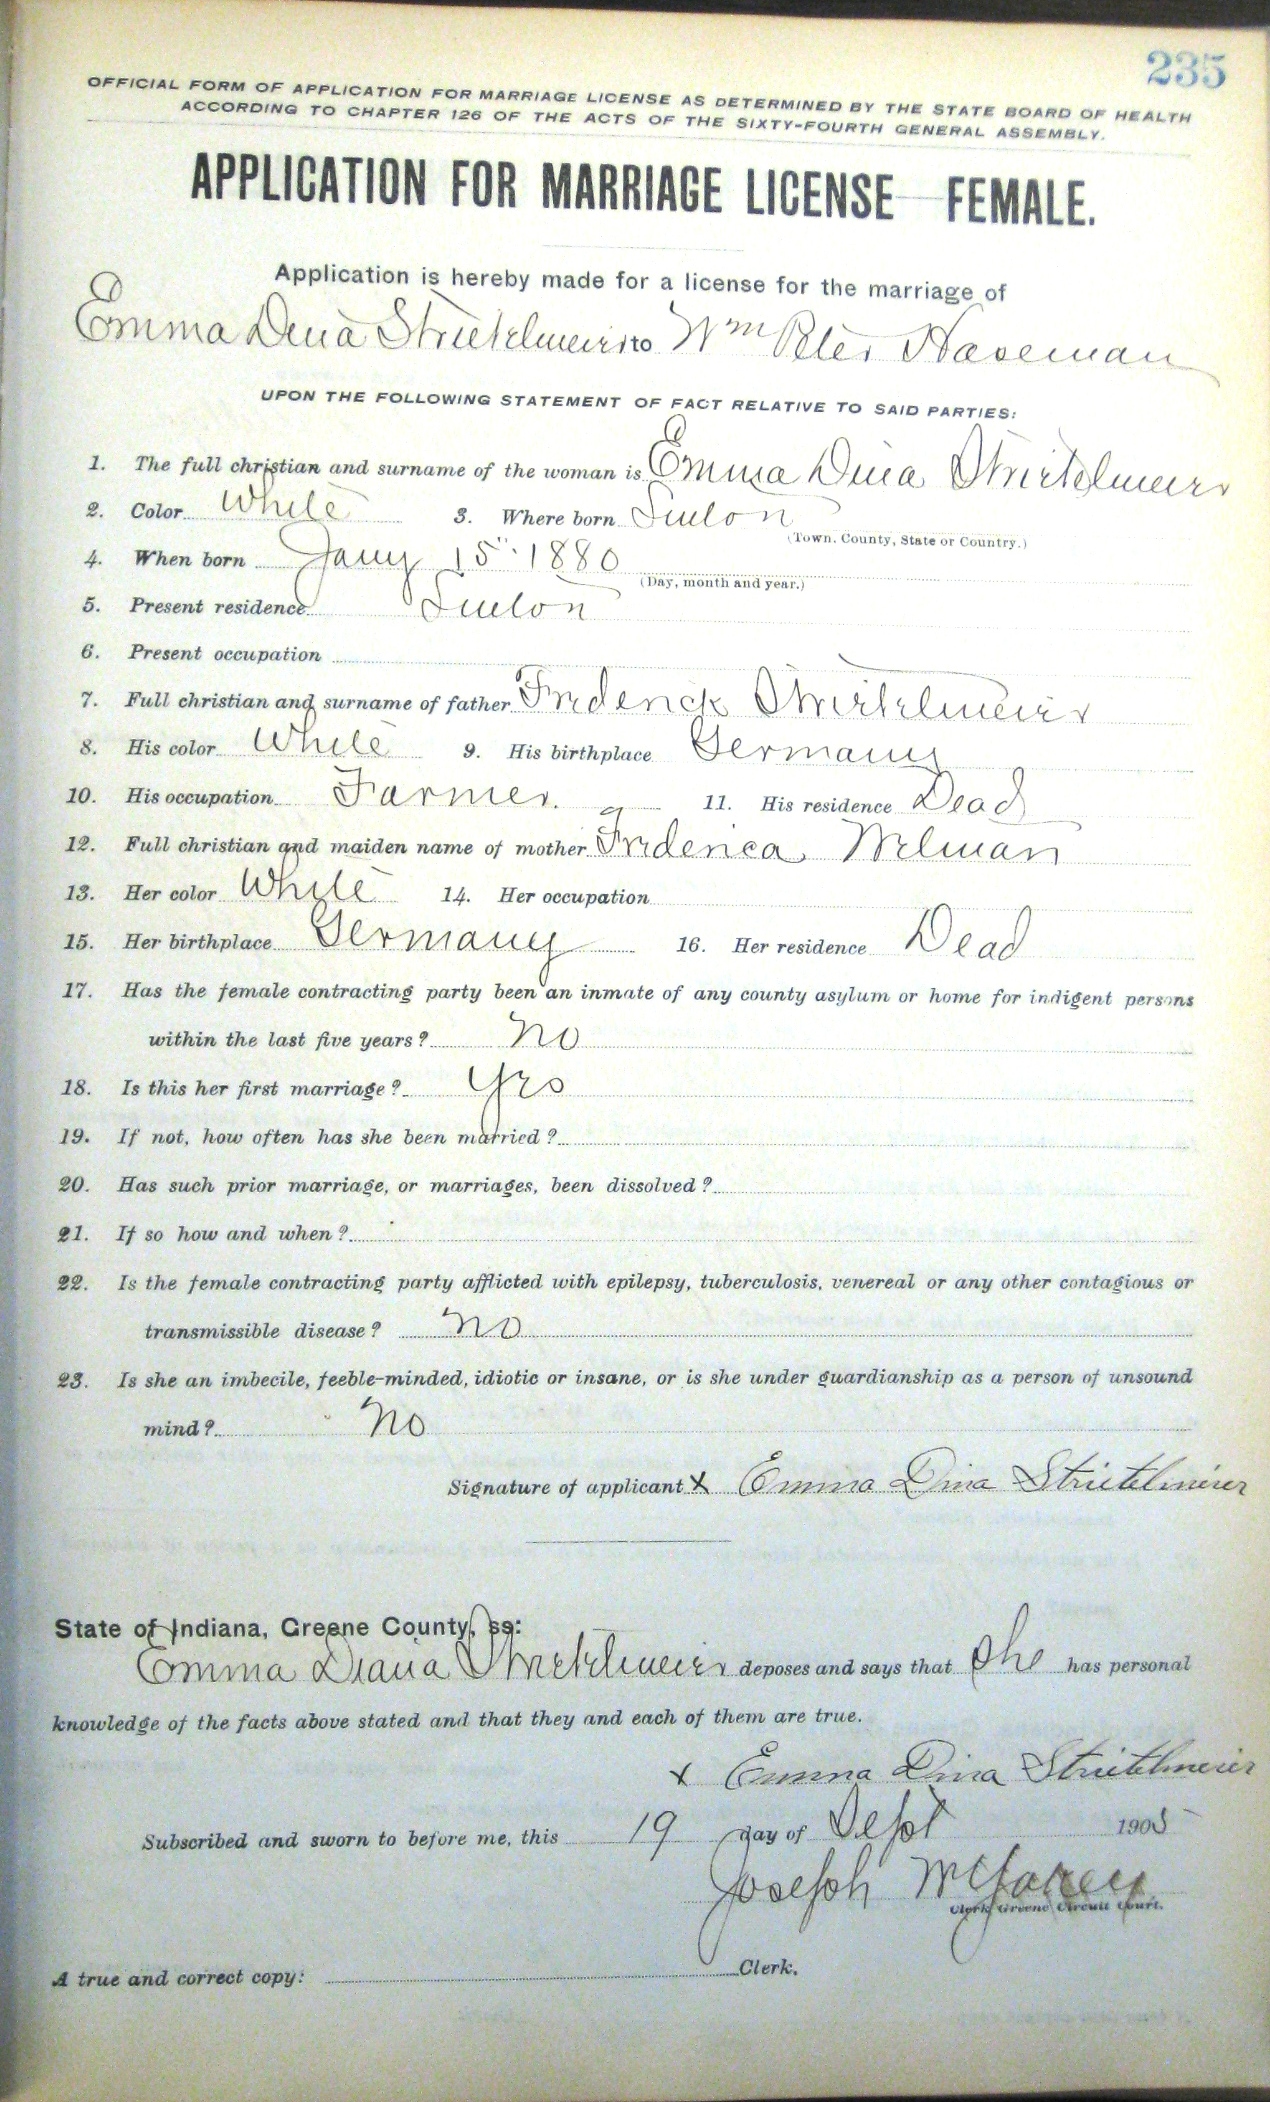 235
OFFICIAL FORM OF APPLICATION FOR MARRIAGE LICENSE AS DETERMINED BY THE STATE BOARD OF HEALTH
ACCORDING TO CHAPTER 126 OF THE ACTS OF THE SIXTY-FOURTH GENERAL ASSEMBLY.
APPLICATION FOR MARRIAGE LICENSE FEMALE.
Application is hereby made for a license for the marriage of
Emma Dina Strietelmeier to Wm Peter Haseman
UPON THE FOLLOWING STATEMENT OF FACT RELATIVE TO SAID PARTIES:
1. The full christian and surname of the woman is Emma Dina Strietelmeier
2. Color White 3. Where born Linton
(Town, County, State or Country.)
4. When born Jany 15" 1880
(Day, month and year.)
5. Present residence Linton
6. Present occupation
7. Full christian and surname of father Frederick Strietelmeier
8. His color White 9. His birthplace Germany
10. His occupation Farmer. 11. His residence Dead
12. Full christian and maiden name of mother Frederica
13. Her color White 14. Her occupation
15. Her birthplace Germany 16. Her residence Dead
17. Has the female contracting party been an inmate of any county asylum or home for indigent persons
within the last five years? no
18. Is this her first marriage? Yes
19. If not, how often has she been married?
20. Has such prior marriage, or marriages, been dissolved?
21. If so how and when?
22. Is the female contracting party afflicted with epilepsy, tuberculosis, venereal or any other contagious or
transmissible disease? no
23. Is she an imbecile, feeble-minded, idiotic or insane, or is she under guardianship as a person of unsound
mind? no
Signature of applicant X Emma Dina Strietelmeier
State of Indiana, Greene County, ss:
Emma Diana Strietelmeier deposes and says that she has personal
knowledge of the facts above stated and that they and each of them are true.
x Emma Dina Strietelmeier
Subscribed and sworn to before me, this 19 day of Sept 1905
Joseph
Clerk Greene Circuit Court.
A true and correct copy: Clerk.